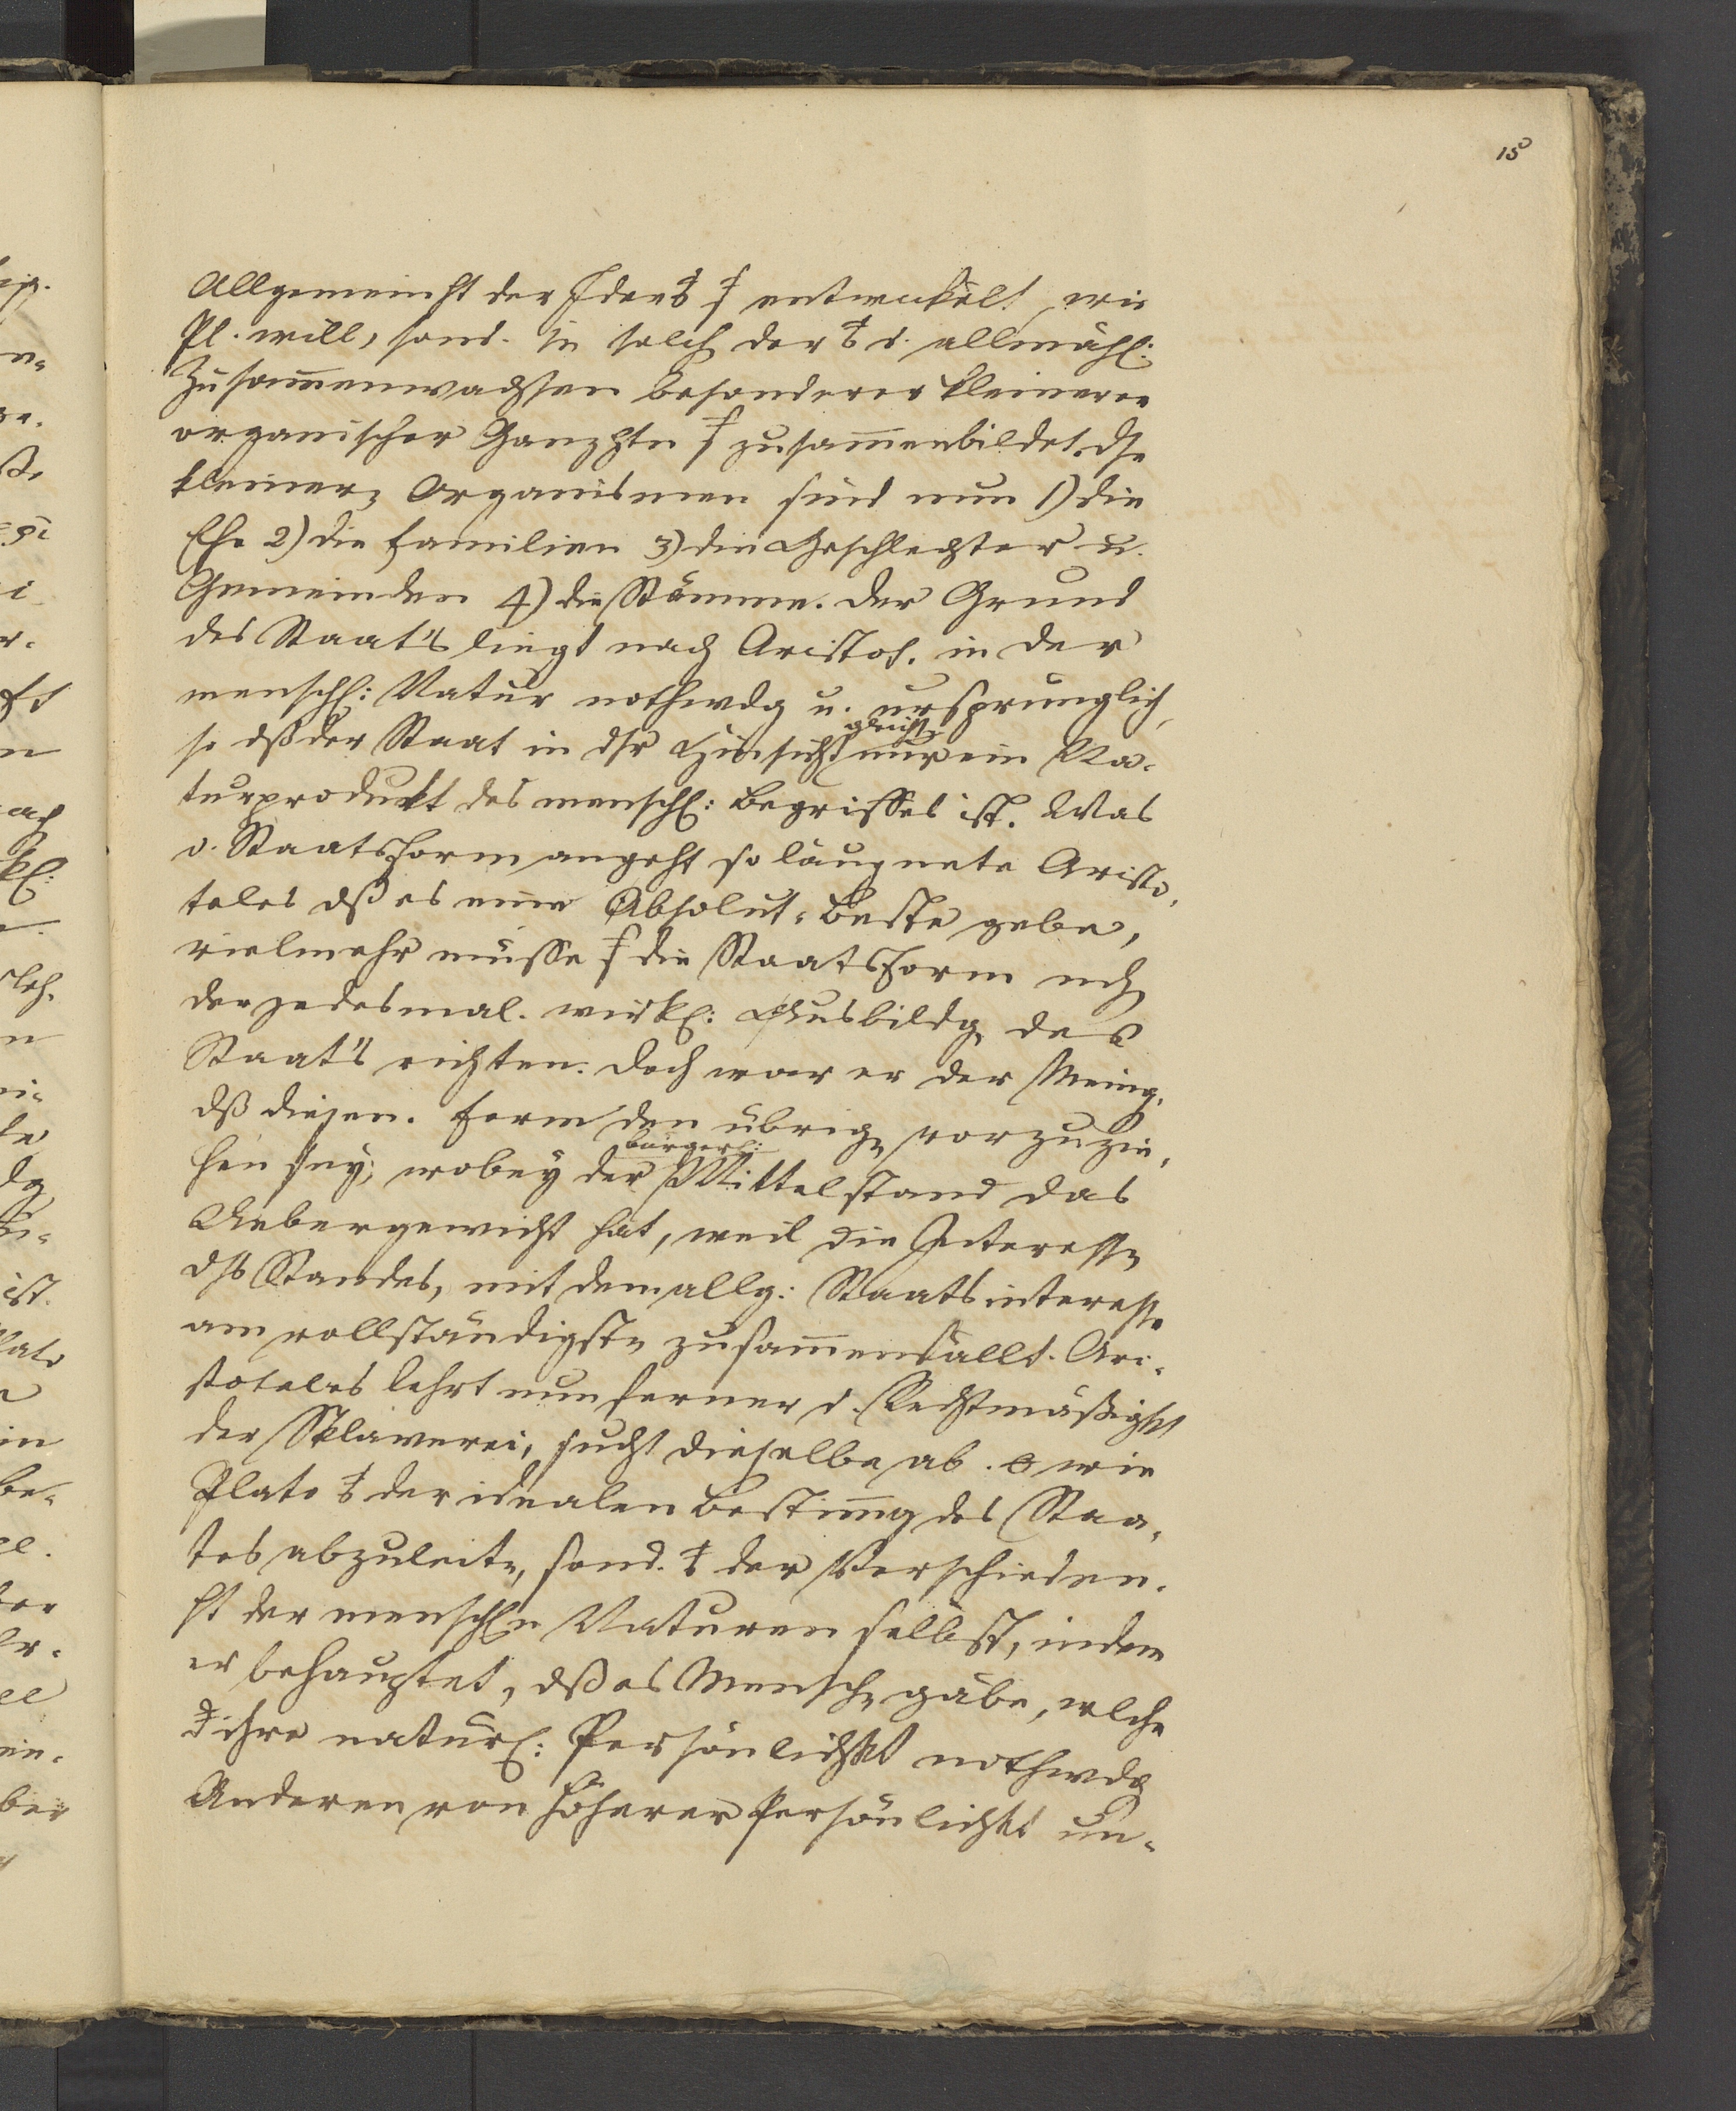 150
Allgemeinht der Idee entwickelt, wie
Pl. will, sond. in solch der d. allmähl:
Zusam̄enwachsen besonderer kleinerer
organischer Ganzhtn zusam̄enbildet. Dse
kleinern Organismen sind nun 1) die
Ehe 2) die Familien 3) die Geschlechter u.
Gemeinden 4) die Stämme. Der Grund
des Staat's liegt nach Aristot. in der
menschl: Natur nothwdg u. ursprünglich,
gleichs.
so dß der Staat in dsr Hinsicht nur ein Na-
turprodukt des menschl: Begriffes ist. Was
d. Staatsform angeht so läugnete Aristo,
teles dß es eine Absolut-Beste gebe,
vielmehr müsse die Staatsform nch
der jedesmal. wirkl: Ausbildg des
Staat's richten. Doch war er der Meing,
dß diejen. Form den übrign vorzuzie,
bürgerl:
hen sey, wobey der Mittelstand das
Uebergewicht hat, weil die Interessn
dss Standes, mit dem allg: Staatsinteresse
am vollständigstn zusam̄enfällt. Ari-
stoteles lehrt nun ferner d. Rechtmäßigkt
der Sklaverei, sucht dieselbe ab. wie
Plato der idealen Bestim̄g des Staa,
tes abzuleitn, sond. der Verschieden-
ht der menschln Naturen selbst, indem
er behauptet, dß es Menschn gäbe, welche
ihre natürl: Persönlichkt nothwdg
Anderen von höherer Persönlichkt un-